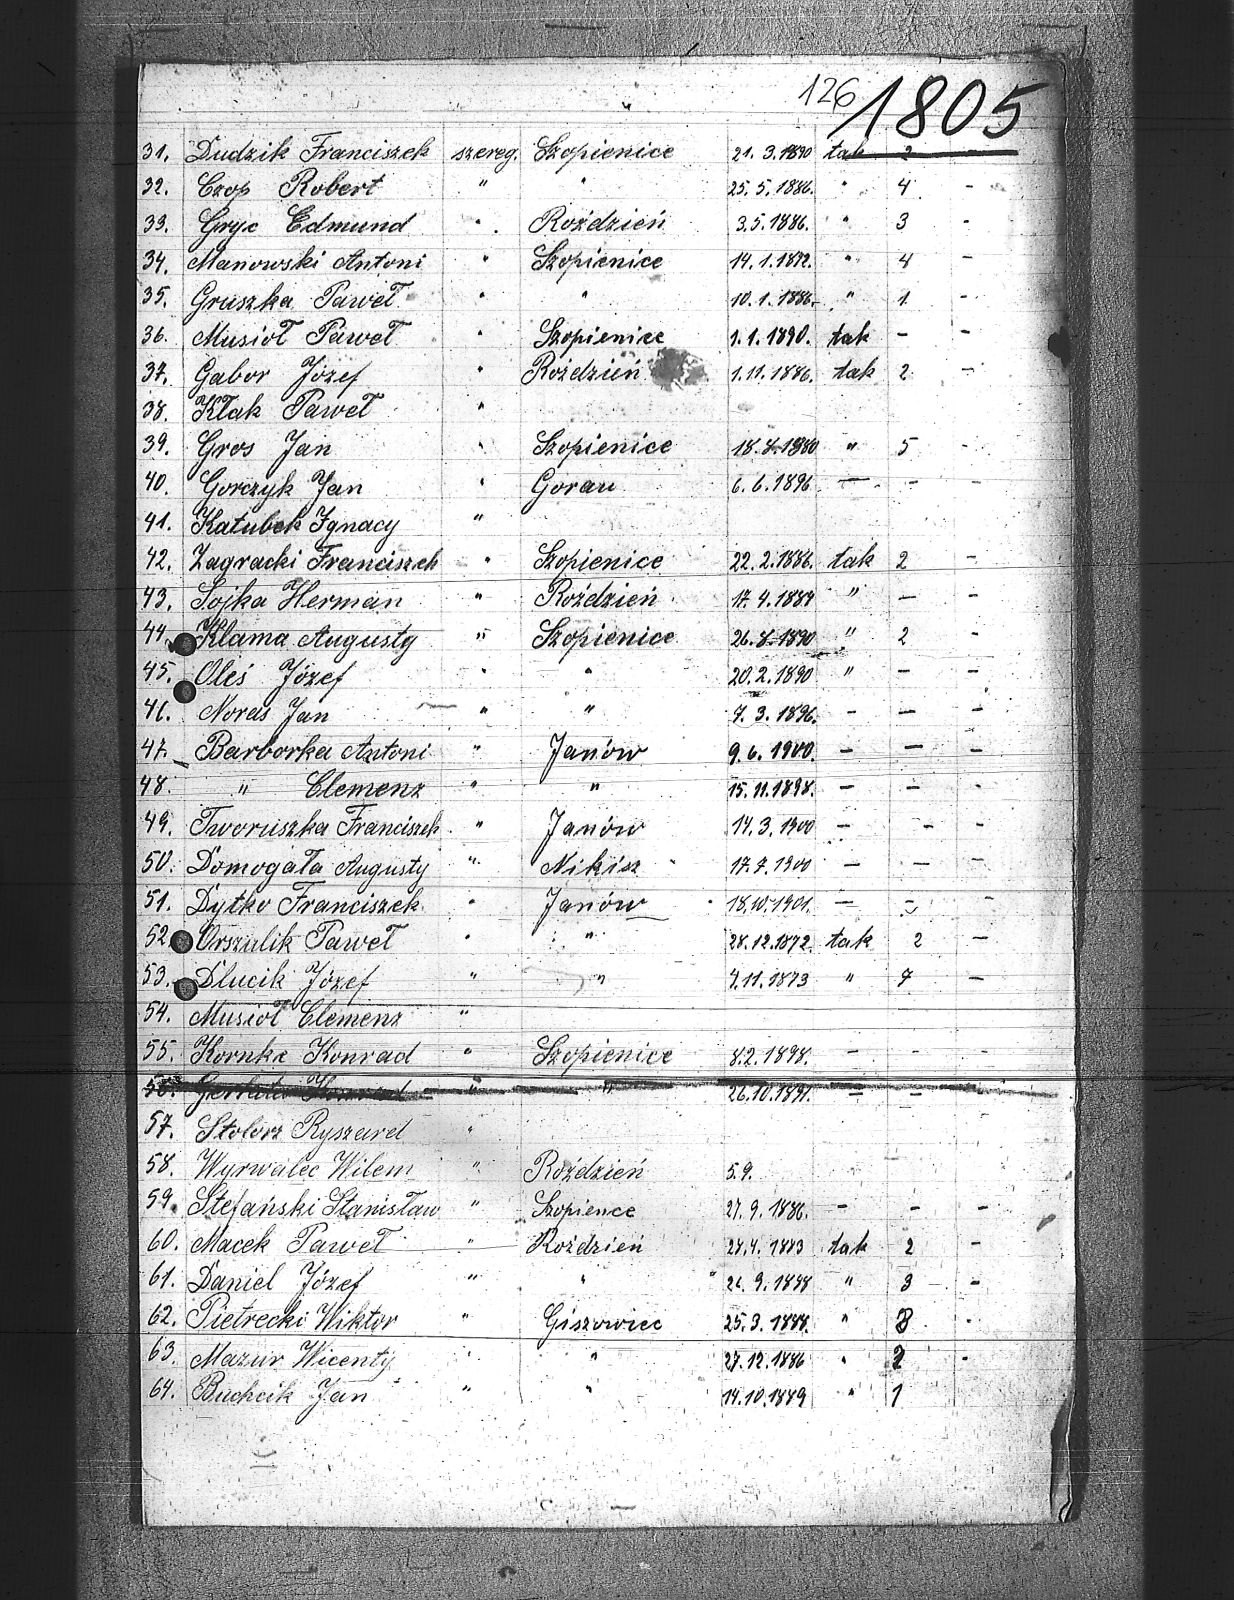 126 1805
31. Dudzik Franciszek szereg. Szopienice 21.3.1890 tak 2
32. Czop Robert " " 25.5.1886. " 4 -
33. Gryc Edmund " Roździeń 3.5.1886. " 3 -
34. Manowski Antoni " Szopienice 14.1.1872. " 4 -
35. Gruszka Paweł " " 10.1.1886. " 1 -
36. Musioł Paweł " Szopienice 1.1.1890. tak - -
37. Gabor Józef " Roździeń 1.11.1886. tak 2 -
38. Kłak Paweł "
39. Gros Jan " Szopienice " 5 -
40. Gorczyk Jan " Gorau 6.6.1896 - - -
41. Katubek Ignacy "
42. Zagracki Franciszek " Szopienice 22.2.1886. tak 2 -
43. Sojka Herman " Roździeń " - -
44. Klama Augusty " Szopienice 26.8.1890 " 2 -
45. Oleś Józef " " 20.2.1890 " - -
46. Noras Jan " " 7.3.1896. - - -
47. Barborka Antoni " Janów 9.6.1900. - - -
48. " Clemenz " " 15.11.1898. - - -
49. Tworuszka Franciszek " Janów 14.3.1900 - - -
50. Domogała Augusty " Nikisz 17.7.1900 - - -
51. Dytko Franciszek " Janów 18.10.1901. - - -
52. Orszulik Paweł " " 28.12.1872. tak 2 -
53. Dlucik Józef " " 7.11.1873 " 7 -
54. Musioł Clemenz "
55. Kornke Konrad " Szopienice 8.2.1898. - - -
56. " " - - -
57. Stolorz Ryszard "
58. Wyrwalec Wilem " Roździeń 5.9.
59. Stefański Stanisław " Szopience 27.9.1886. - - -
60. Macek Paweł " Roździeń tak 2 -
61. Daniel Józef " " " 3 -
62. Pietrecki Wiktor " Giszowiec 25.3.1888. " 8 -
63. Mazur Wicenty " " 27.12.1886 " 2 -
64. Buchcik Jan " " 14.10.1889 " 1